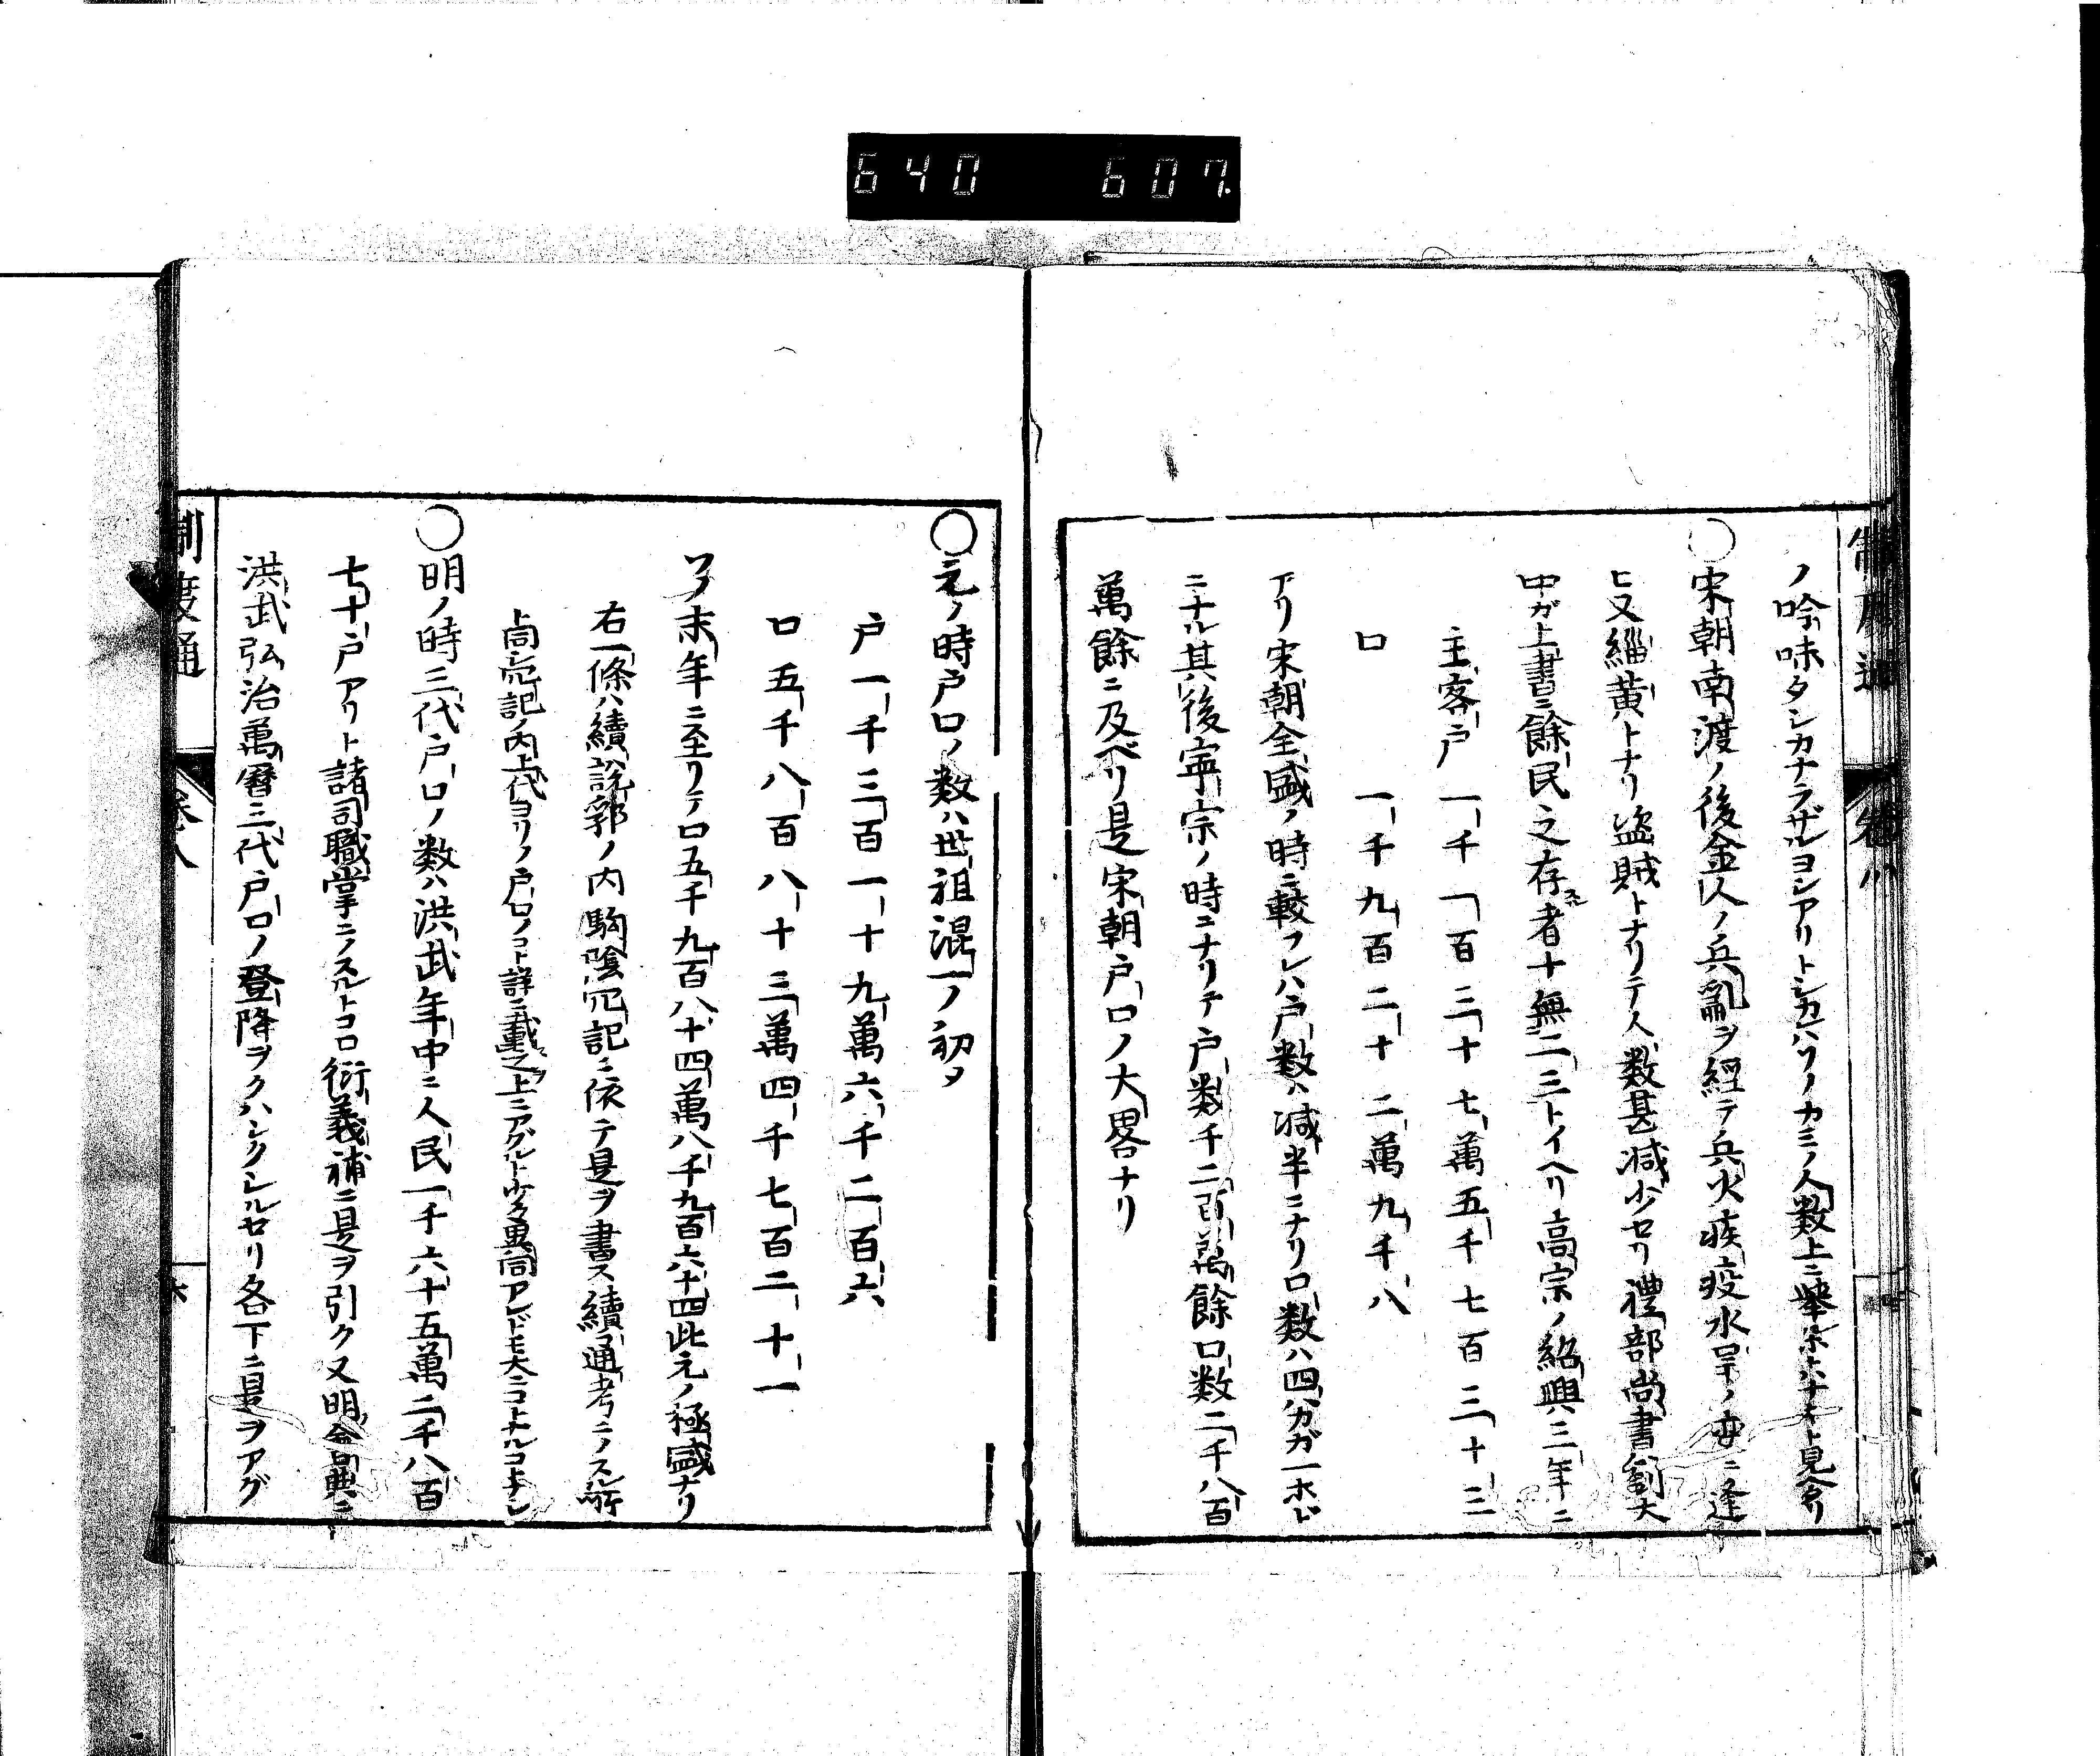 640 607
制度通 卷八
ノ吟味タシカナラザルヨシアリトシカレバソノカミノ人数上ニ舉
○宋朝南渡ノ後金人ノ兵亂ヲ經テ兵火疾疫水旱ノ変ニ逢
ヒ又緇黄トナリ盗賊トナリテ人数甚減少セリ禮部尚書劉大
中ガ上書ニ餘民之存者十無二三トイヘリ高宗ノ紹興三年ニ
主客戸 一千一百三十七萬五千七百三十三
口 一千九百二十二萬九千八
アリ宋朝全盛ノ時ニ較フレハ戸数ハ減半ニナリ口数ハ四ガ一ホド
ニナル其後寧宗ノ時ニナリテ戸数千二百萬餘口数二千八百
萬餘ニ及ベリ是宋朝戸口ノ大畧ナリ
○元ノ時戸口ノ数ハ世祖混一ノ初メ
戸一千三百一十九萬六千二百六
口五千八百八十三萬四千七百二十一
ソノ末年ニ至リテ口五千九百八十四萬八千九百六十四此元ノ極盛ナリ
右一條ハ續說郛ノ内駒陰冗記ニ依テ是ヲ書ス續通考ニノスル所
ト同冗記ノ内上代ヨリノ戸口ノコト詳ニ載之上ニアグルト少々異同アレドモ大ニコトナルコトナシ
○明ノ時三代戸口ノ数ハ洪武年中ニ人民一千六十五萬二千八百
七十戸アリト諸司職掌ニノスルトコロ衍義補ニ是ヲ引ク又明會典ニ
洪武弘治萬曆三代戸口ノ登降ヲクハシクシルセリ各下ニ是ヲアグ
制度通 卷八 六